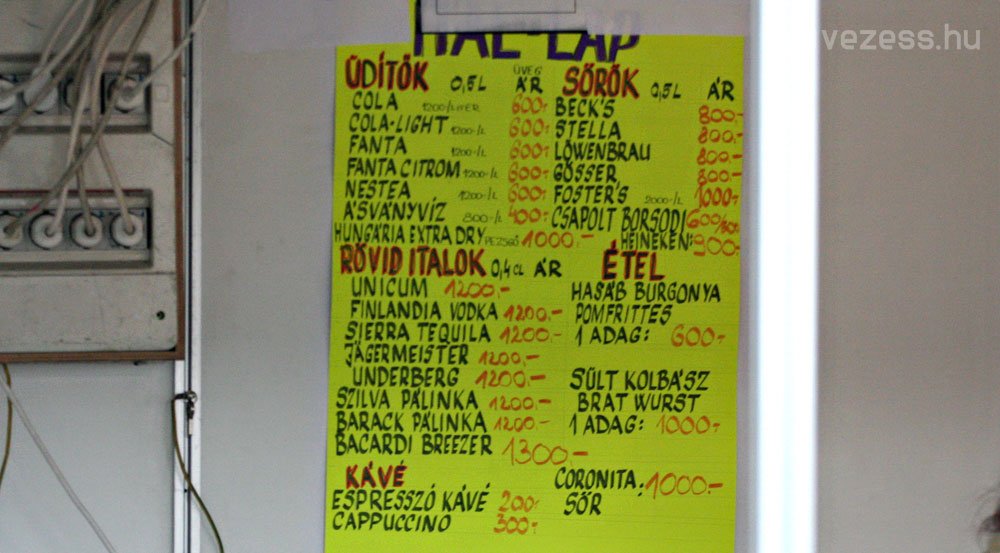 vezess.hu
ITAL-LAP
ÜDÍTŐK 0,5L ÜVEG ÁR
COLA 1200-/LITER 600.-
COLA-LIGHT 1200-/L 600.-
FANTA 1200-/L 600.-
FANTA CITROM 1200-/L 600.-
NESTEA 1200-/L 600.-
ÁSVÁNYVÍZ 800-/L 400.-
HUNGÁRIA EXTRA DRY PEZSGŐ 1000.-
RÖVID ITALOK 0,4CL ÁR
UNICUM 1200.-
FINLANDIA VODKA 1200.-
SIERRA TEQUILA 1200.-
JÄGERMEISTER 1200.-
UNDERBERG 1200.-
SZILVA PÁLINKA 1200.-
BARACK PÁLINKA 1200.-
BACARDI BREEZER 1300.-
KÁVÉ
ESPRESSZÓ KÁVÉ 200.-
CAPPUCCINO 300.-
SÖRÖK 0,5L ÁR
BECK'S 800.-
STELLA 800.-
LÖWENBRAU 800.-
GÖSSER 800.-
FOSTER'S 2000-/L 1000.-
CSAPOLT BORSODI 600/
HEINEKEN: 900.-
ÉTEL
HASÁB BURGONYA
POMFRITTES
1 ADAG: 600.-
SÜLT KOLBÁSZ
BRAT WURST
1 ADAG: 1000.-
CORONITA: 1000.-
SÖR